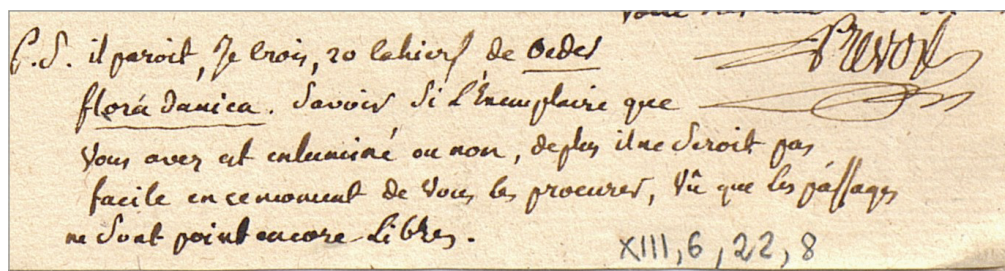 P.S. il paroit, Je crois, 20 Cahiers de Oeder
Prevost
flora danica. Savoir Si L'Exemplaire que
Vous avez est enluminé ou non, deplus il ne Seroit pas
facile en ce moment de Vous les procurer, Vû que les passages
ne Sont point encore Libres.
XIII, 6, 22, 8